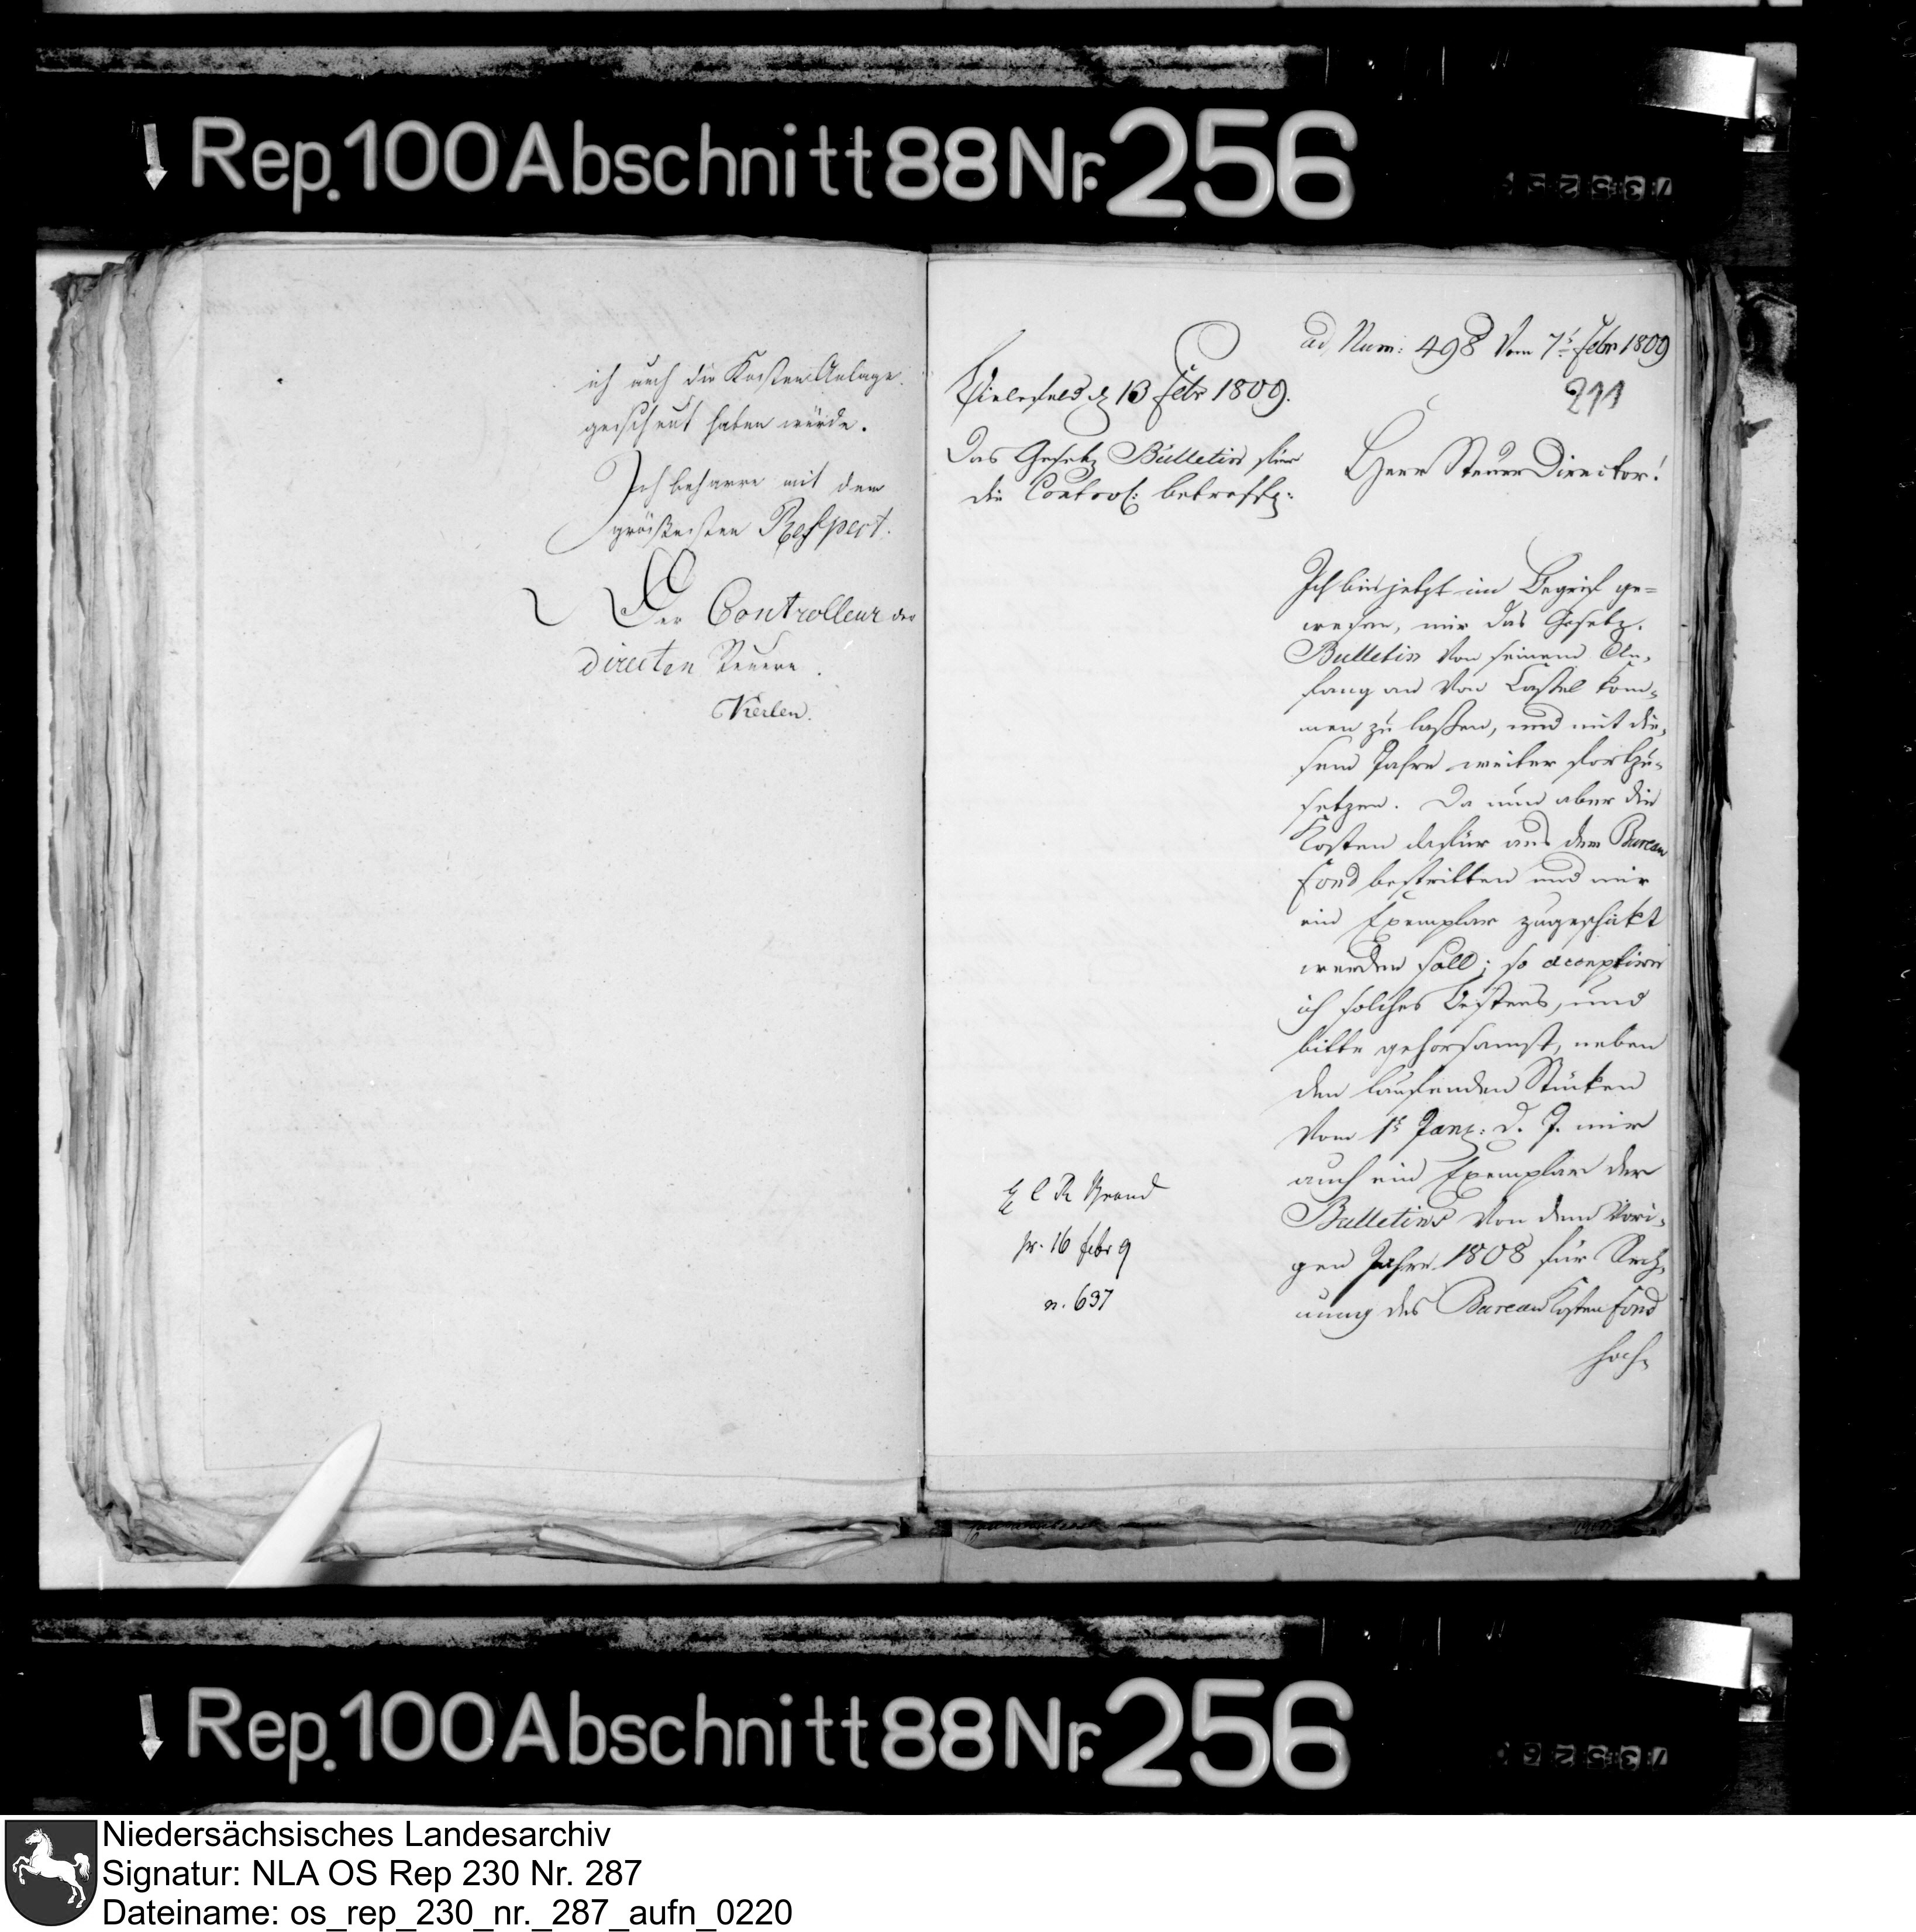 Rep. 100 Abschnitt 88 Nr. 256
ich auch die Kosten Anlage
gescheut haben würde.
Ich beharre mit dem
größesten Respect.
Der Controlleur der
directen Steuern.
Kerlen.
ad Num: 498 vom 7t Febr 1809
211
Bielefeld d 13 Febr 1809.
Das Gesetz Bulletin für
die Control: betreffd:
Herr Steuer Director!
Ich bin jetzt im Begrif ge=
wesen, mir das Gesetz-
Bulletin von seinem An-
fang an von Cassel kom-
men zu laßen, und mit die-
sem Jahre weiter fortzu-
setzen. Da nun aber die
Kosten dafür aus dem Bureau
Fond bestritten und mir
ein Exemplar zugeschikt
werden soll; so acceptire
ich solches bestens, und
bitte gehorsamst, neben
den laufenden Stücken
vom 1t Janr: d. J. mir
auch ein Exemplar der
Bulletins von dem vori-
gen Jahre 1808 für Rech-
nung des Bureau Kosten Fond
hoch-
pr. 16 Febr 9
n. 637
Rep. 100 Abschnitt 88 Nr. 256
Niedersächsisches Landesarchiv
Signatur: NLA OS Rep 230 Nr. 287
Dateiname: os_rep_230_nr._287_aufn_0220